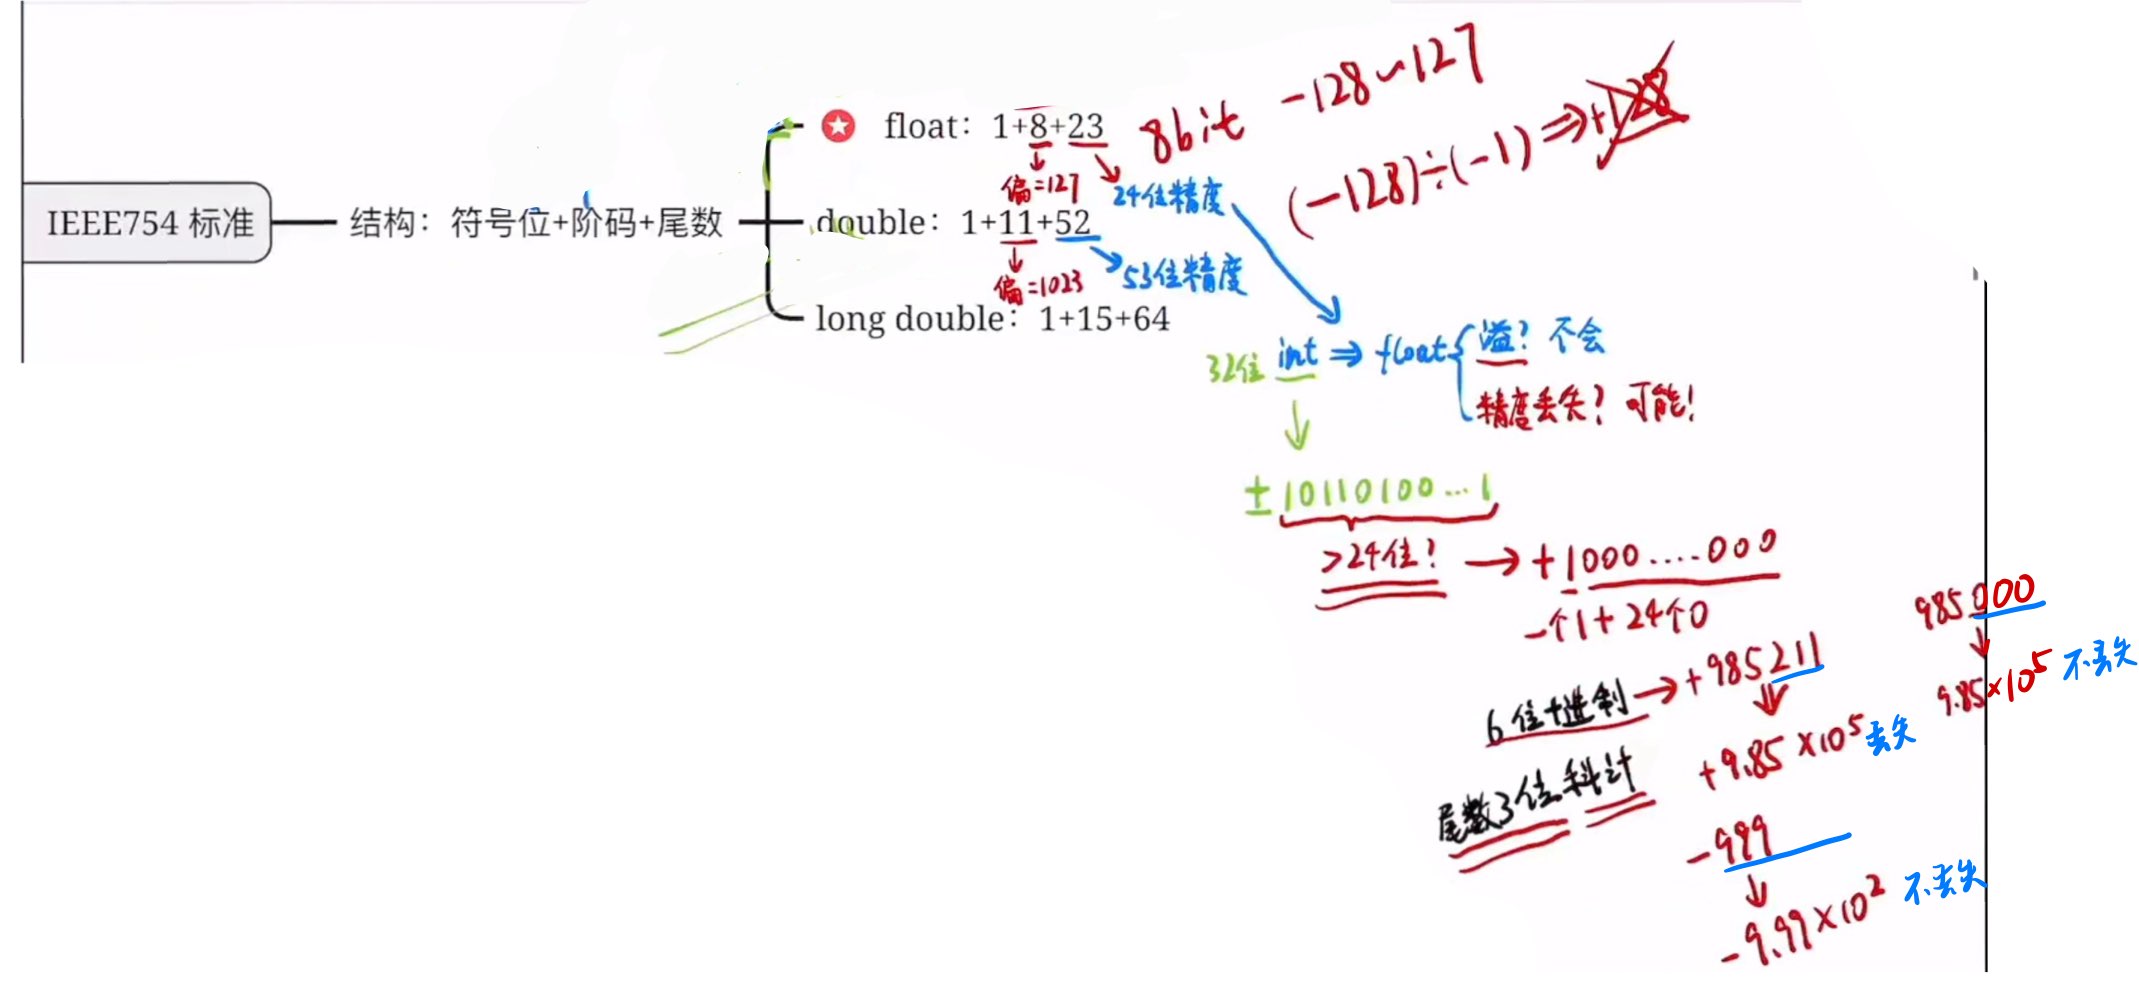 IEEE754 标准
结构：符号位+阶码+尾数
float：1+8+23
偏=127
24位精度
double：1+11+52
偏=1023
53位精度
long double：1+15+64
8bit -128~127
(-128)÷(-1)⇒+128
32位 int ⇒ float
溢？不会
精度丢失？可能！
±10110100...1
>24位？→+1000....000
一个1+24个0
6位十进制→+985211
+9.85×10⁵丢失
尾数3位科计
-999
-9.99×10² 不丢失
985000
9.85×10⁵ 不丢失